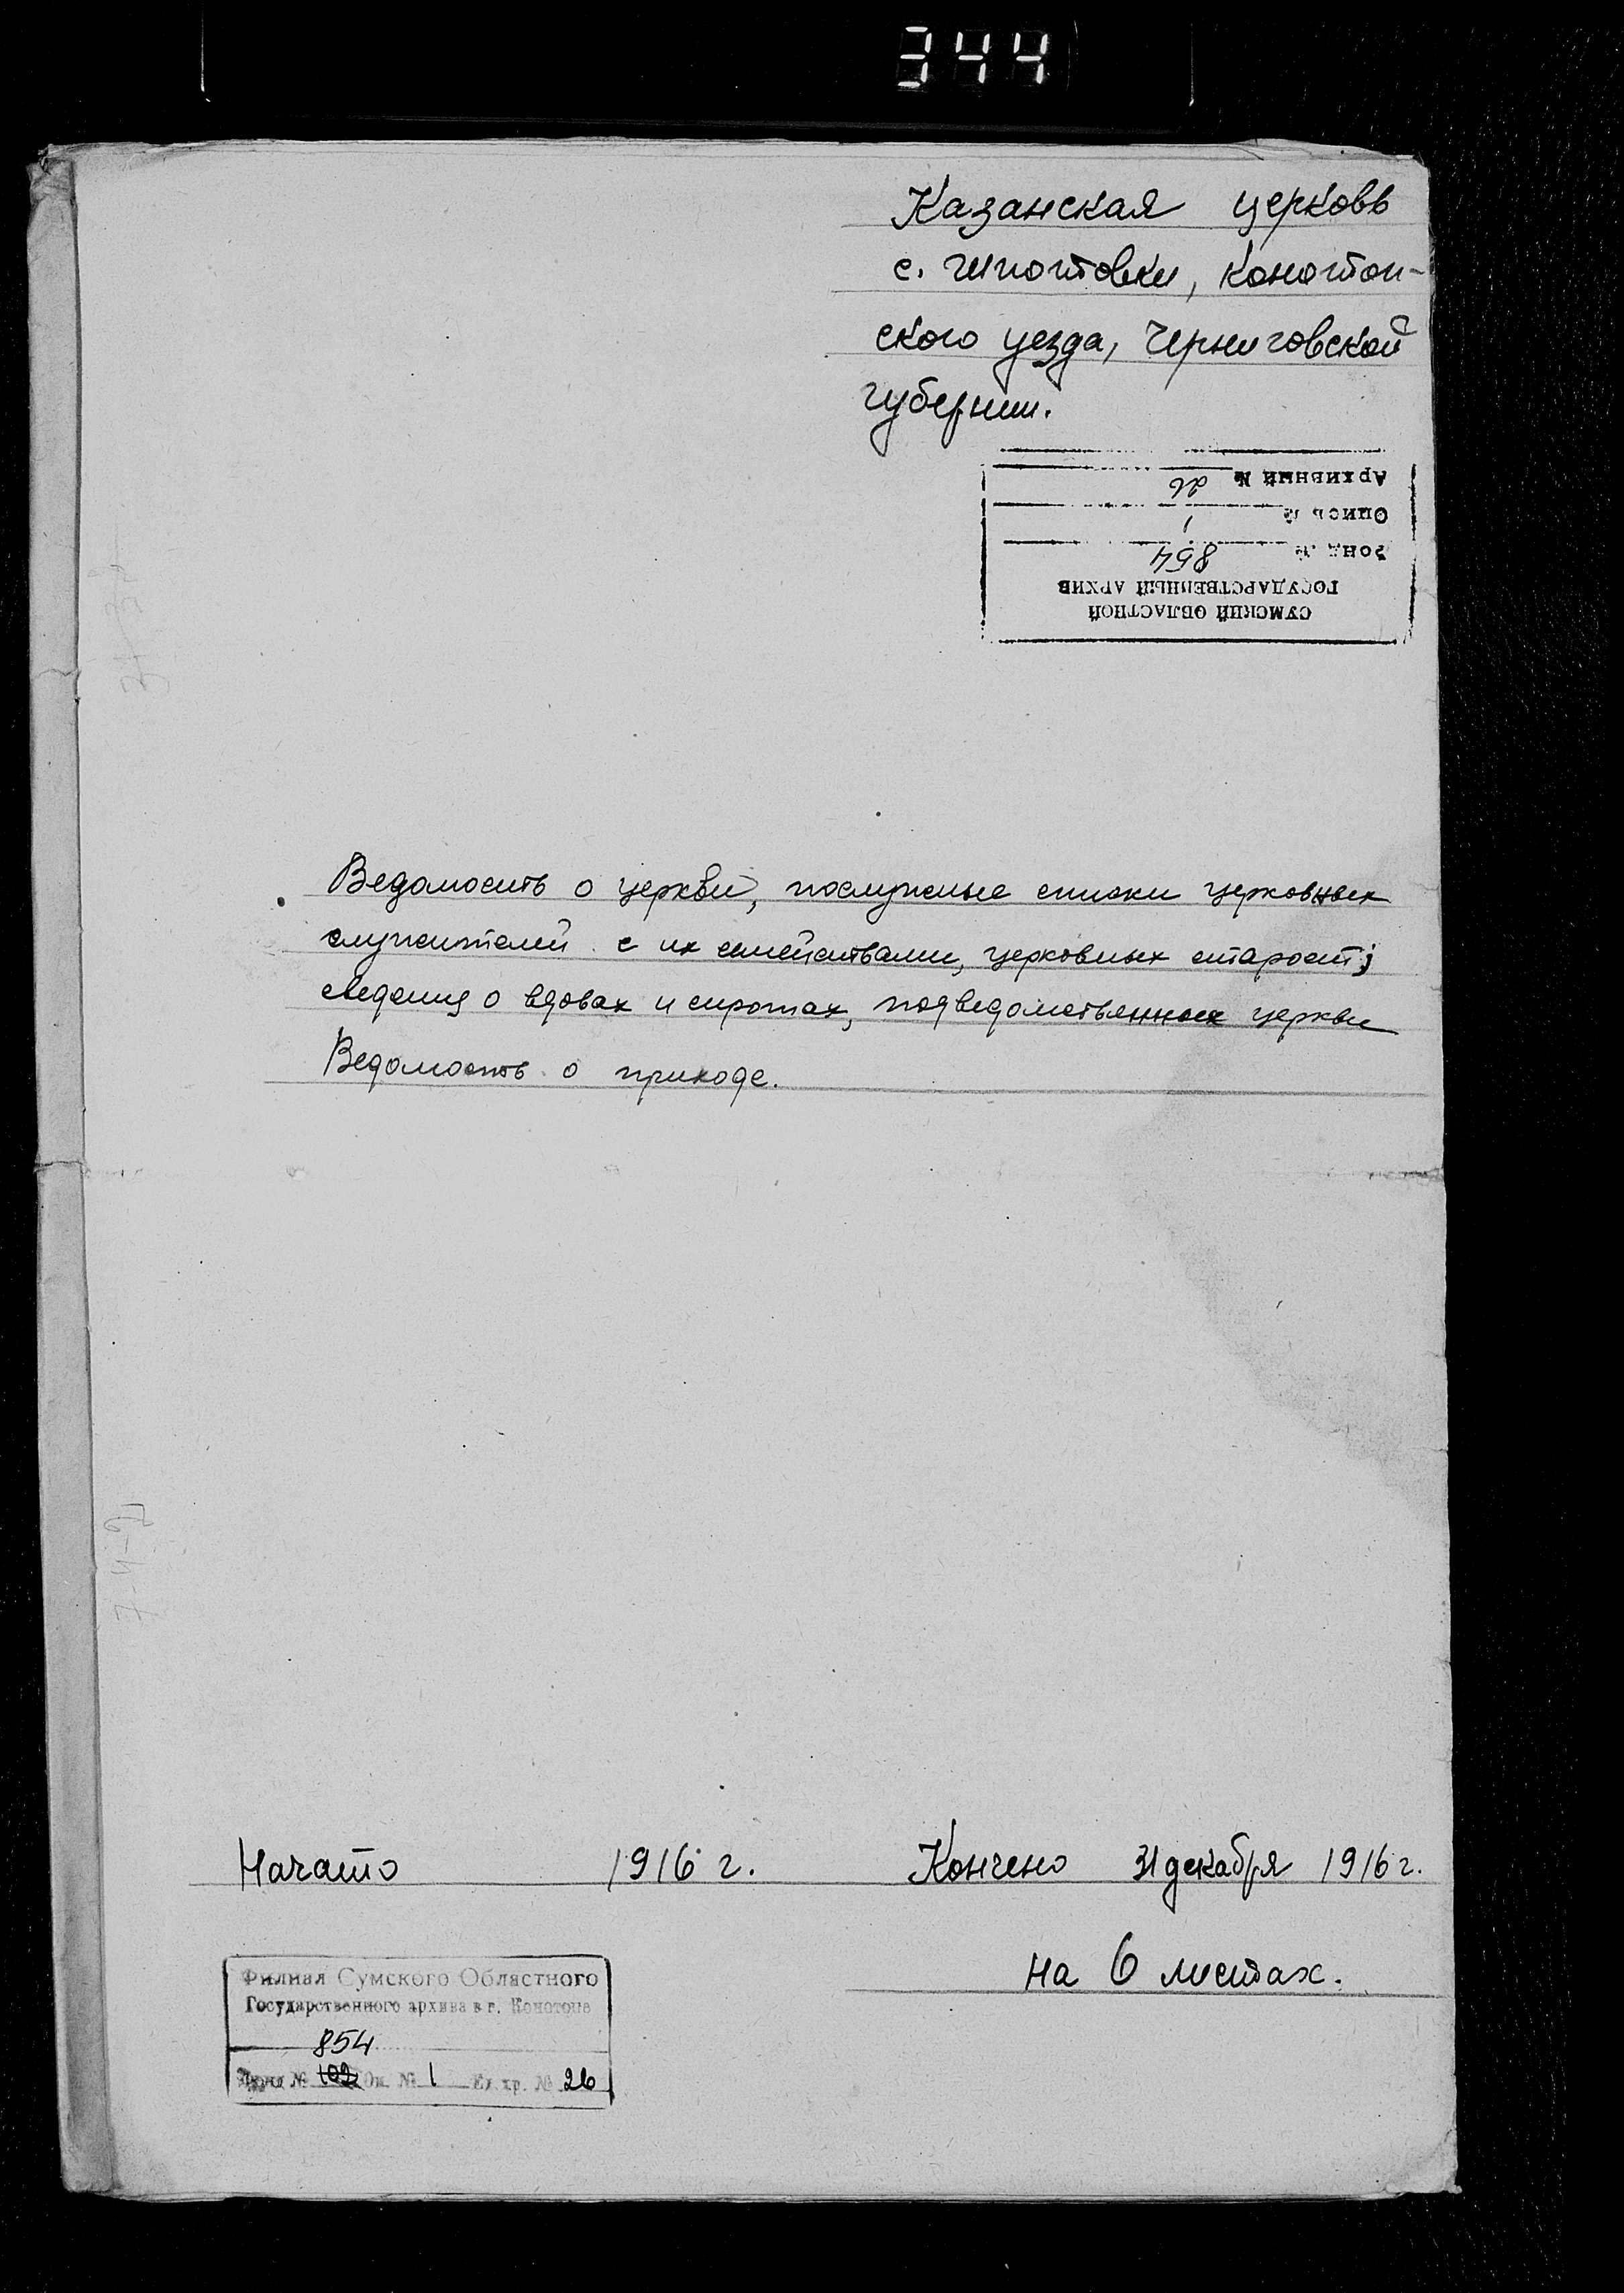 344
Казанская церковь
с. Шпотовки, Конотоп-
ского уезда, Черниговской
губернии.
Архивный № 26
Опись № 1
Фонд № 854
ГОСУДАРСТВЕННЫЙ АРХИВ
СУМСКИЙ ОБЛАСТНОЙ
Ведомость о церкви, послужные списки церковных
служителей с их семействами, церковных старост;
сведения о вдовах и сиротах, подведомственных церкви
Ведомость о приходе.
Начато 1916 г. Кончено 31 декабря 1916 г.
на 6 листах.
Филиал Сумского Областного
Государственного архива в г. Конотопе
854
Фонд № 102 Оп. № 1 Ед. хр. № 26